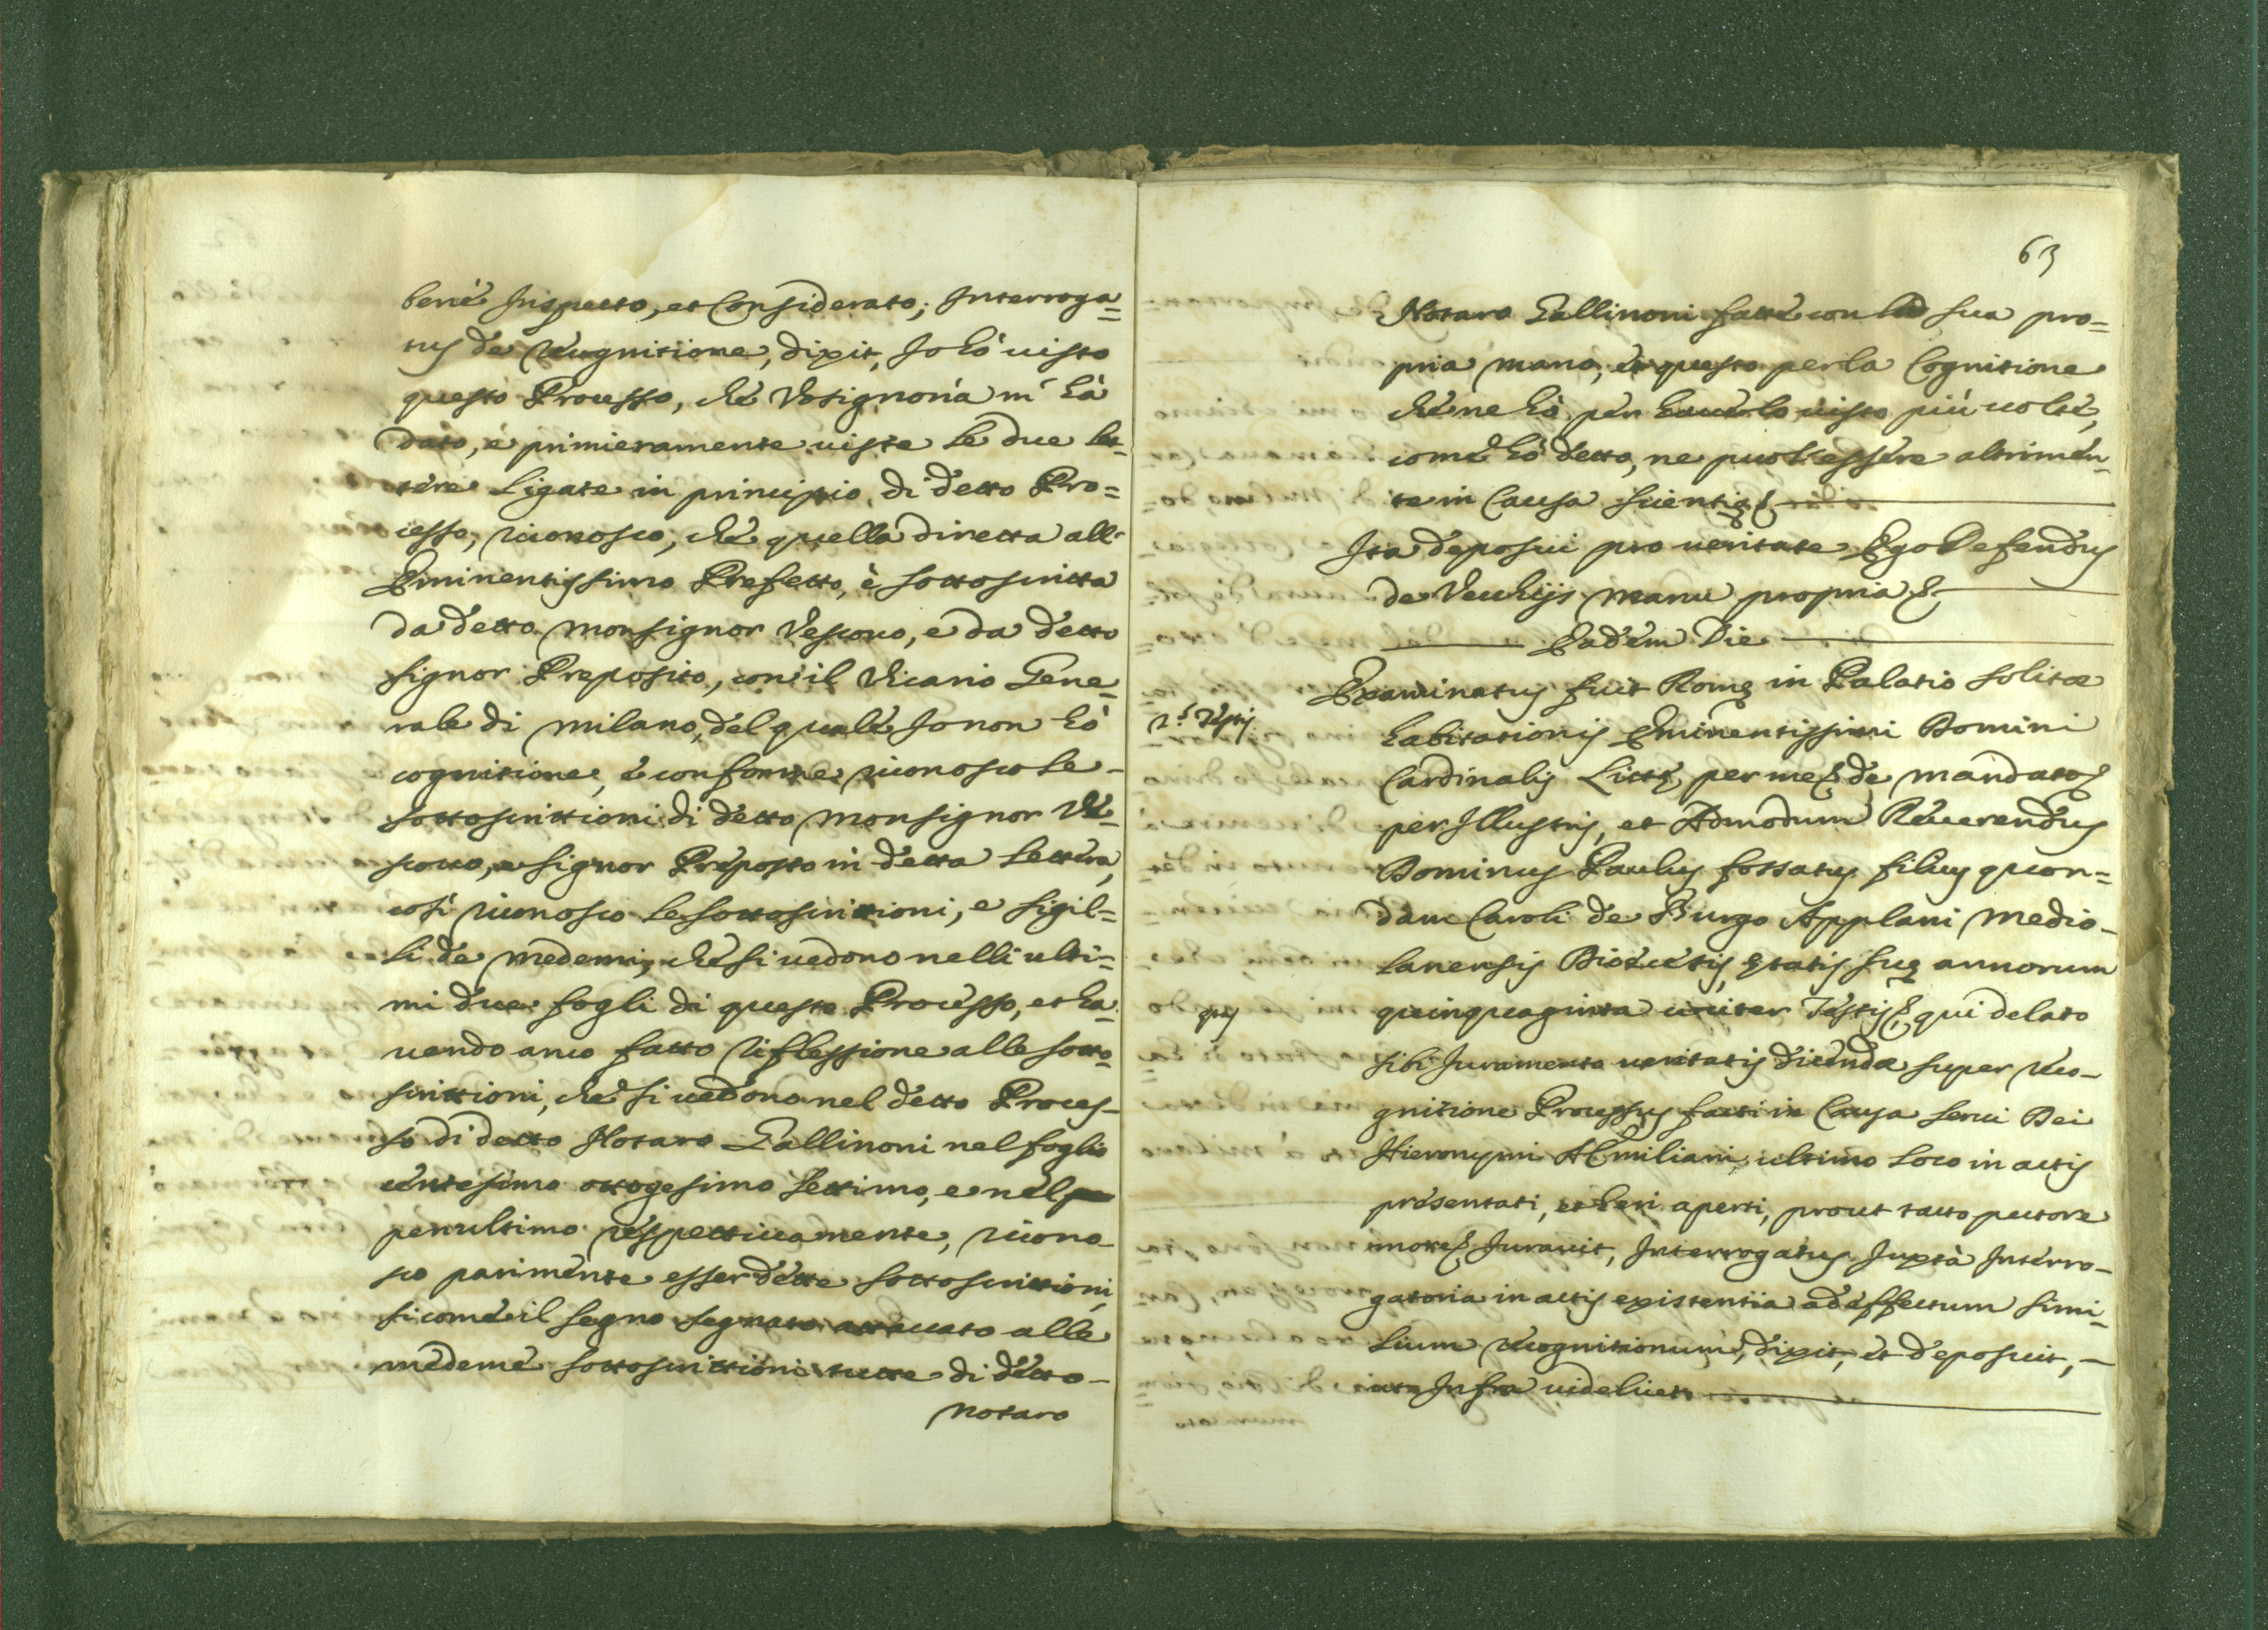 bene Inspecto, et Considerato; Interroga=
tus de recognitione, dixit, Io hò uisto
questo Processo, che Vosignoria m' hà
dato, e primieramente uiste le due let=
tere ligate in principio di detto Pro=
cesso, riconosco, che quella diretta all'
Eminentissimo Prefetto, è sottoscritta
da detto Monsignor Vescouo, e da detto
Signor Preposito, con il Vicario Gene=
rale di Milano, del quale Io non hò
cognitione, e conforme riconosco le -
sottoscrittioni di detto Monsignor Ve=
scouo, e Signor Preposto in detta lettera,
così riconosco le sottoscrittioni, e sigil=
li de medemi, che si uedono nelli ulti=
mi due fogli di questo Processo, et ha=
uendo anco fatto riflessione alle sotto=
scrittioni, che si uedono nel detto Proces-
so di detto Notaro Gallinoni nel foglio
centesimo ottogesimo settimo, e nel
penultimo respettiuamente, ricono-
sco parimente esser dette sottoscrittioni,
si come il segno segnato attaccato alle
medeme sottoscrittioni tutte di detto -
Notaro
63
Notaro Gallinoni fatte con la sua pro=
pria mano, et questo per la Cognitione
che ne hò per hauerlo uisto più uolte,
come hò detto, ne puol essere altrimen=
te in Causa scientię &
Ita deposui pro ueritate Ego Defendus
de Vecchijs manu propria &
Eadem Die
Examinatus fuit Romę in Palatio solitæ
2.s Testis
habitationis Eminentissimi Domini
Cardinalis Littę per me & de mandato &
per Illustris, et Admodum Reuerendus
Dominus Paulus fossatus filius quon=
dam Caroli de Burgo Applani Medio-
lanensis Diœcesis, ętatis suę annorum
quinquaginta circiter Testis & qui delato
qui
sibi Iuramento ueritatis dicendæ super reco-
gnitione Processus facti in Causa serui Dei
Hieronymi AEmiliani, ultimo loco in actis
presentati, et heri aperti, prout tacto pectore
more & Iurauit, Interrogatus Iuxtà Interro-
gatoria in actis existentia ad effectum simi=
lium recognitionum, dixit, et deposuit, -
ut Infra uidelicet